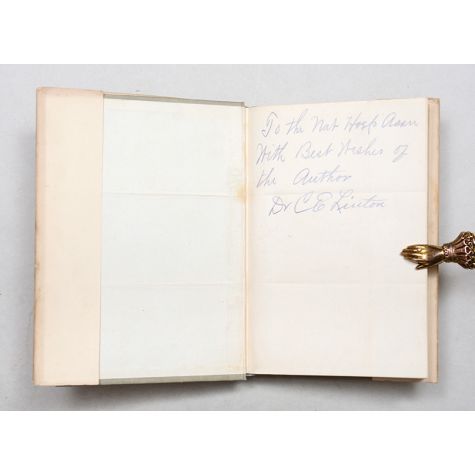 To the Nat Hosp Assn
With Best Wishes of
the Author
Dr C E Linton